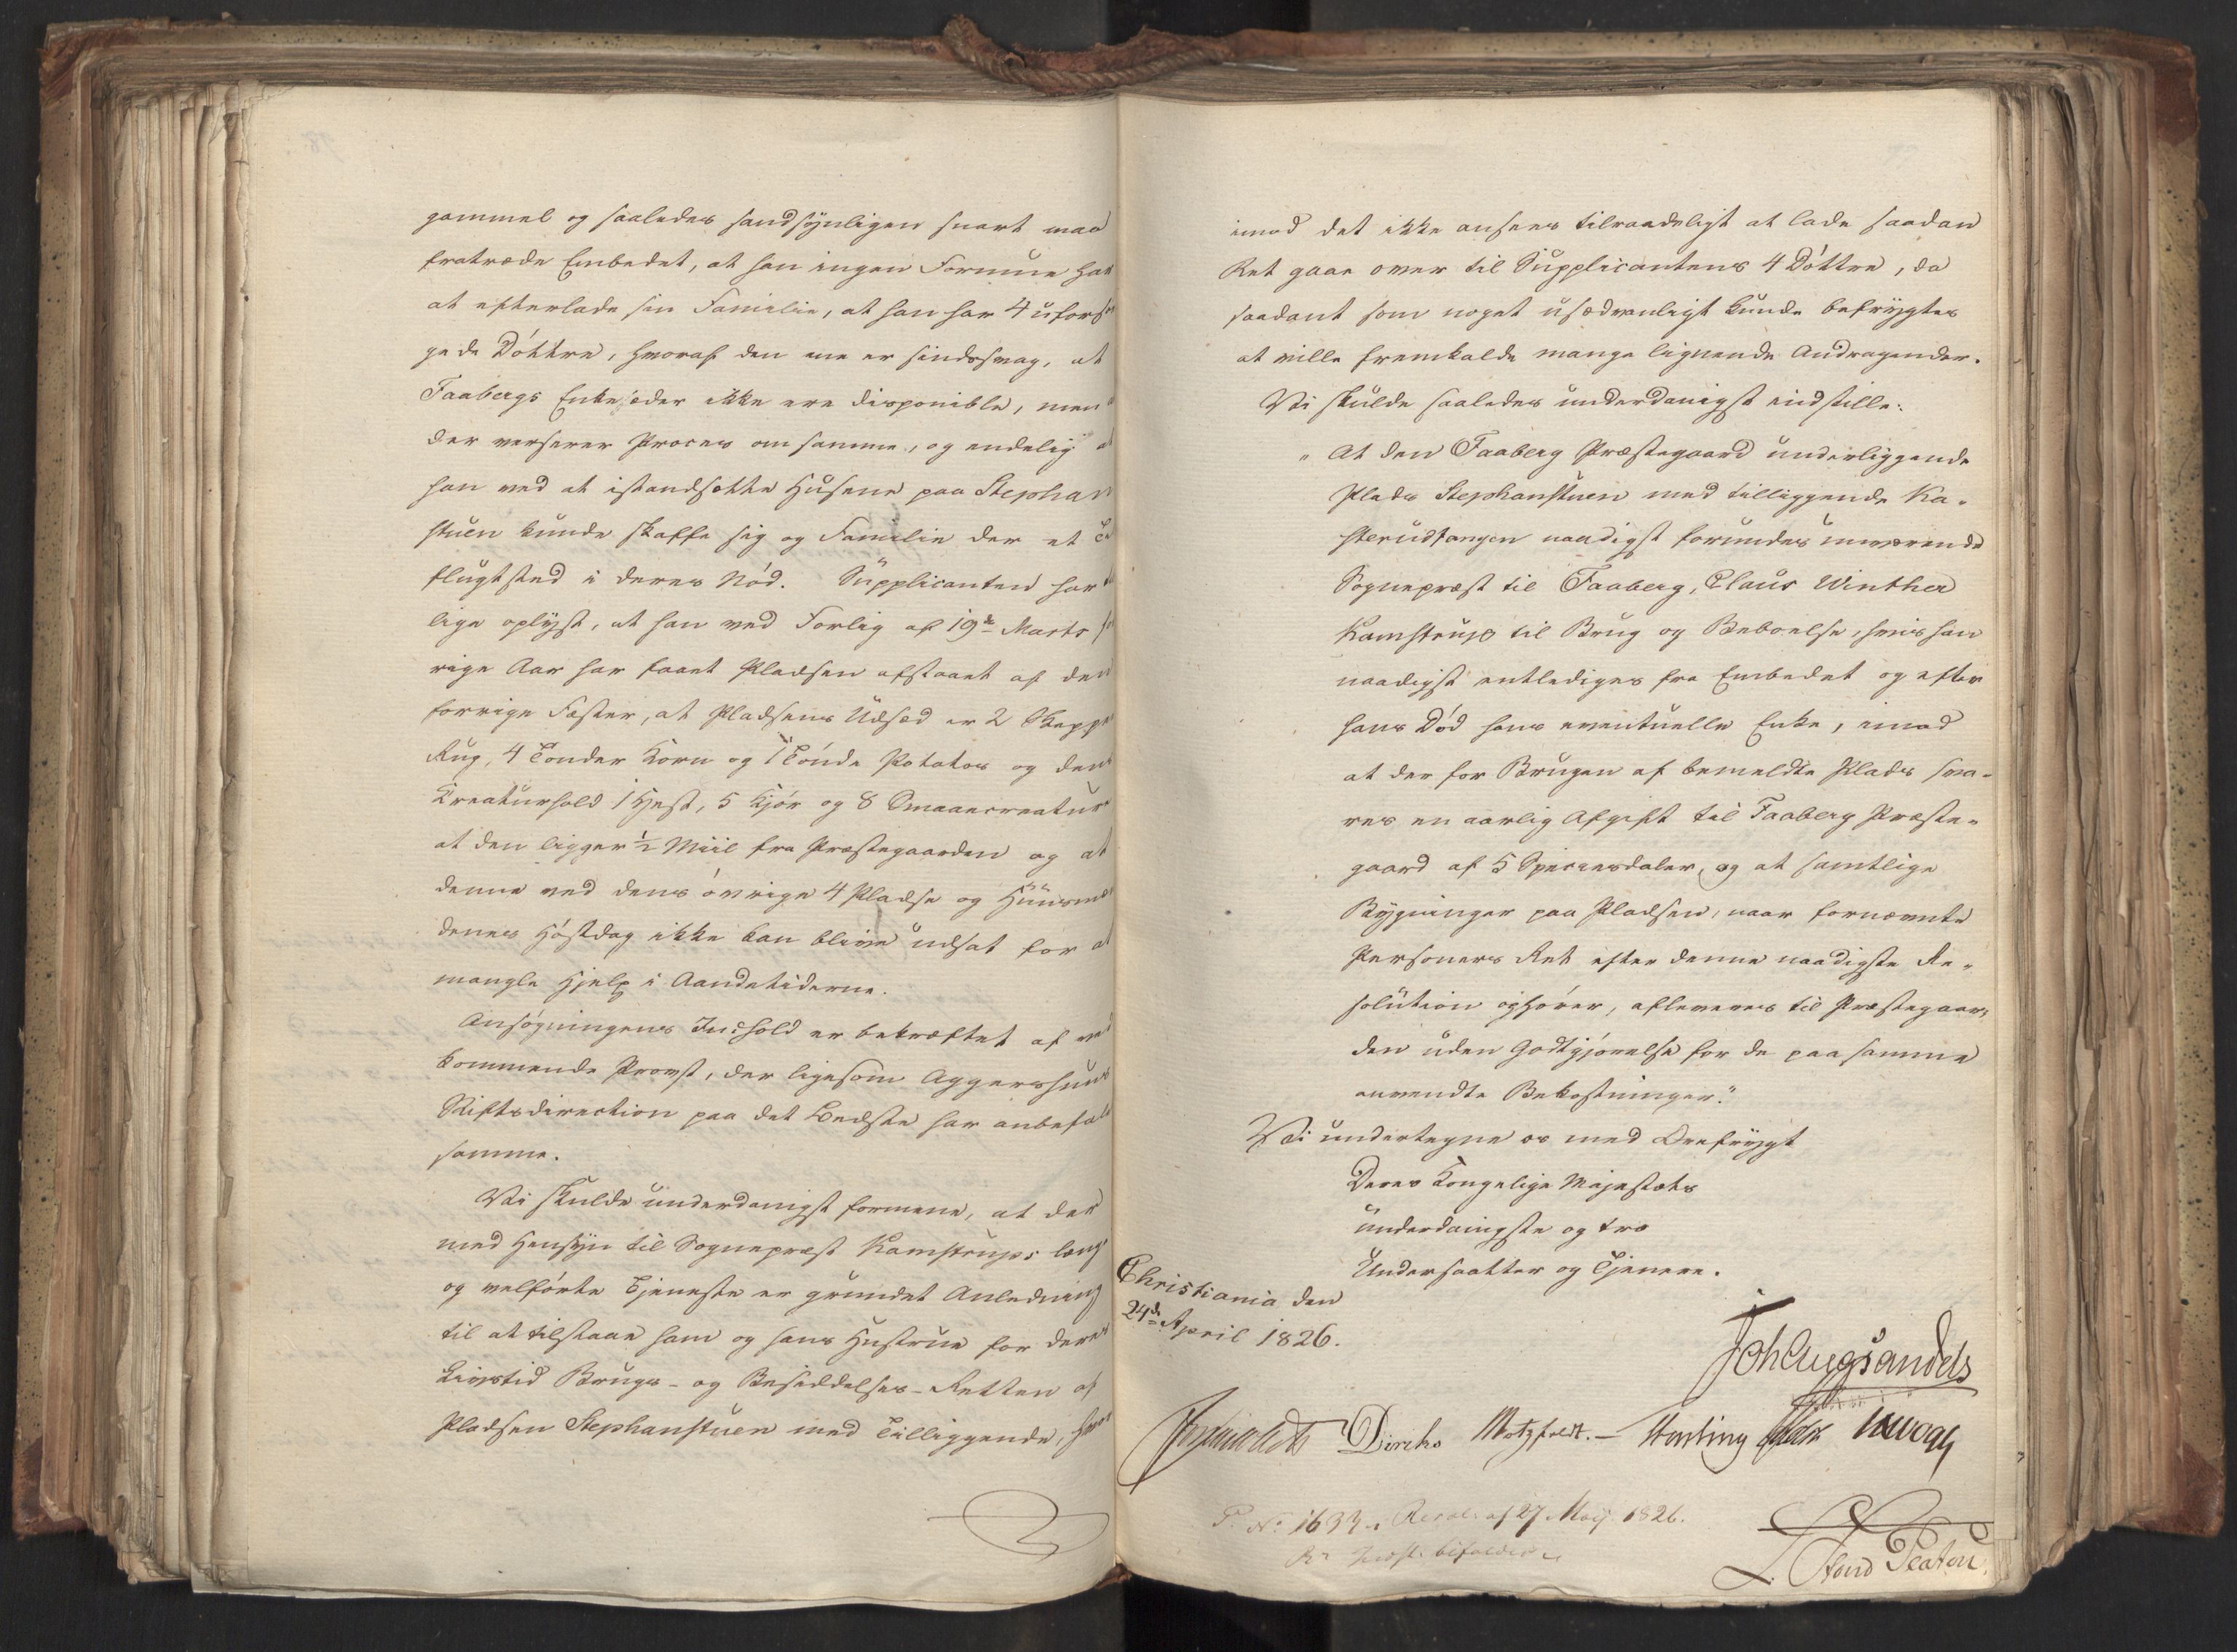 gammel og saaledes sandsynligen snart maa
fratræde Embedet, at han ingen Formue har
at efterlade sin Familie, at han har 4 uforsør
gede Döttre, hvoraf den ene er sindssvag, at
Faabergs Enkesæder ikke ere disponible, men
der verserer Proces om samme, og endelig at
han ved at istandsætte Husene paa Stephan
stuen kunde skaffe sig og Familie der et Til
flugtsted i deres Nöd. Supplicanten har
lige oplyst, at han ved Forlig af 19de Marts for
rige Aar har faaet Pladsen afstaaet af den
forrige Fæster, at Pladsens Udsæd er 2 Skepper
Rug, 4 Tönder Korn og 1 Tönde Potatos og dens
Kreaturhold 1 Hest, 5 Kjör og 8 Smaacreaturer
at den ligger ½ Miil fra Præstegaarden og at
denne ved dens övrige 4 Pladse og Huusmæn
denes Höstdag ikke kan blive udsat for at
mangle Hjelp i Aandetiderne.
Ansögningens Indhold er bekræftet af ved
kommende Provst, der ligesom Aggershuus
Stiftsdirection paa det Bedste har anbefalet
samme.
Vi skulde underdanigst formene, at der
med Hensyn til Sognepræst Kamstrups lange
og velförte Tjeneste er grundet Anledning
til at tilstaae ham og hans Hustrue for deres
Livstid Brugs- og Besiddelses-Retten af
Pladsen Stephanstuen med Tilliggende, hvor
imod det ikke ansees tilraadeligt at lade saadan
Ret gaae over til Supplicantens 4 Döttre, da
saadant som noget usædvanligt kunde befrygtes
at ville fremkalde mange lignende Andragender.
Vi skulde saaledes underdanigst indstille:
"At den Faaberg Præstegaard underliggende
Plads Stephanstuen med tilliggende Ka-
sterudtangen naadigst forundes nuværende
Sognepræst til Faaberg, Claus Winther
Kamstrup til Brug og Beboelse, hvis han
naadigst entlediges fra Embedet og efter
hans Död hans eventuelle Enke, imod
at der for Brugen af bemeldte Plads sva-
res en aarlig Afgift til Faaberg Præste-
gaard af 5 Speciesdaler, og at samtlige
Bygninger paa Pladsen, naar fornævnte
Personers Ret efter denne naadigste Re-
solution ophörer, afleveres til Præstegaar-
den uden Godtgjörelse for de paa samme
anvendte Bekostninger."
Vi undertegne os med Ærefrygt
Deres Kongelige Majestæts
underdanigste og tro
Undersaatter og Tjenere.
Christiania den
24de April 1826.
Joh Aug Sandels
Diriks Motzfeldt.- 
P. No 1633. Resol. af 27 May 1826.
Indst. bifaldes